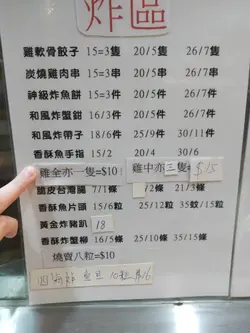 炸區
雞軟骨餃子 15=3隻 20/5隻 26/7隻
炭燒雞肉串 15=3串 20/5串 26/7串
神級炸魚餅 15=3件 20/5件 26/7件
和風炸蟹鉗 16/3件 20/5件 26/7件
和風炸帶子 18/6件 25/9件 30/11件
香酥魚手指 15/2 20/4 30/6
雞全亦一隻=$10 雞中亦三隻=$15
脆皮台灣腸 7/1條 /2條 21/3條
香酥魚片頭 15/6粒 25/12粒 35蚊/15粒
黃金炸豬扒 18
香酥炸蟹柳 16/5條 25/10條 35/15條
燒賣八粒=$10
10粒 $16